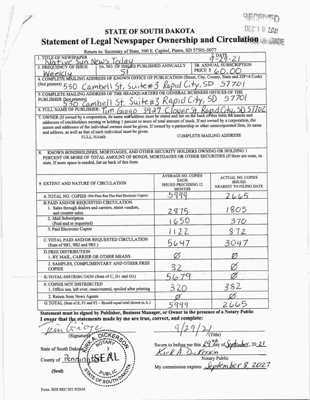 RECEIVED
STATE OF SOUTH DAKOTA
Statement of Legal Newspaper Ownership and Circulation
Return to: Secretary of State, 500 E. Capitol, Pierre, SD 57501-5077
1. TITLE OF NEWSPAPER
Native Sun News Today
2. DATE
9-29-21
3. FREQUENCY OF ISSUE
Weekly
3A. NO. OF ISSUES PUBLISHED ANNUALLY
51
3B. ANNUAL SUBSCRIPTION
PRICE $ 60.00
4. COMPLETE MAILING ADDRESS OF KNOWN OFFICE OF PUBLICATION (Street, City, County, State and ZIP+4 Code)
(Not printers) 550 Cambell St. Suite #3 Rapid City, SD 57701
5. COMPLETE MAILING ADDRESS OF THE HEADQUARTERS OF GENERAL BUSINESS OFFICES OF THE
PUBLISHER (Not printers)
550 Cambell St. Suite #3 Rapid City, SD 57701
6. FULL NAME OF PUBLISHER: Tim Rapid City, SD 57702
7. OWNER (If owned by a corporation, its name and address must be stated and
addresses of stockholders owning or holding 1 percent or more of total amount of stock. If not owned by a corporation, the
names and addresses of the individual owners must be given. If owned by a partnership or other unincorporated firm, its name
and address, as well as that of each individual must be given.
FULL NAME
COMPLETE MAILING ADDRESS
8. KNOWN BONDHOLDERS, MORTGAGES, AND OTHER SECURITY HOLDERS OWNING OR HOLDING 1
PERCENT OR MORE OF TOTAL AMOUNT OF BONDS, MORTGAGES OR OTHER SECURITIES (If there are none, so
state. If more space is needed, list on back of this form.
9. EXTENT AND NATURE OF CIRCULATION
AVERAGE NO. COPIES
EACH
ISSUED PRECEDING 12
MONTHS
ACTUAL NO. COPIES
ISSUED
NEAREST TO FILING DATE
A. TOTAL NO. COPIES 5999 2665
B. PAID AND/OR REQUESTED CIRCULATION
1. Sales through dealers and carriers, street vendors,
and counter sales. 2875 1805
2. Mail Subscription
(Paid and/or requested) 1650 370
3. Paid Electronic Copies 1122 872
C. TOTAL PAID AND/OR REQUESTED CIRCULATION
(Sum of 9B1, 9B2 and 9B3) 5647 3047
D. FREE DISTRIBUTION
1. BY MAIL, CARRIER OR OTHER MEANS Ø Ø
2. SAMPLES, COMPLIMENTARY AND OTHER FREE
COPIES 32 Ø
E. TOTAL DISTRIBUTION (Sum of C, D1 and D2) 5679 Ø
F. COPIES NOT DISTRIBUTED
1. Office use, left over, unaccounted, spoiled after printing 320 382
2. Return from News Agents Ø Ø
G. TOTAL (Sum of E, F1 and F2 – Should equal total shown in A.) 5999 2665
Statement must be signed by Publisher, Business Manager, or Owner in the presence of a Notary Public
I swear that the statements made by me are true, correct, and complete:
9/29/21
(Signature)
(Title)
State of South Dakota
County of Pennington
(Seal)
KIRK A. DICKERSON
NOTARY
SEAL
PUBLIC
SOUTH DAKOTA
Sworn to before me this 29th day of September, 2021
Kirk A Dickerson
Notary Public
My commission expires: September 8, 2027